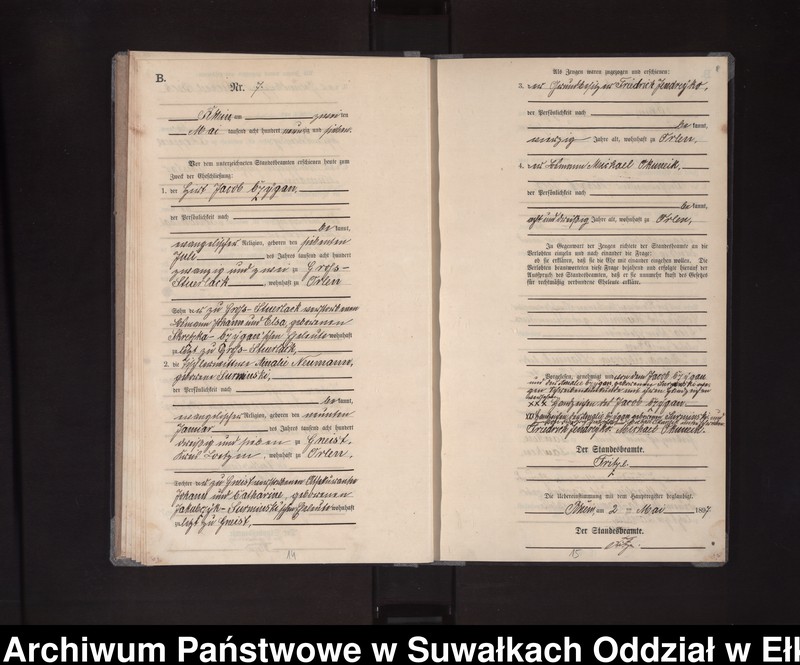 B.
Nr. 7.
am zwei ten
Mai tausend acht hundert neunzig und sieben.
Vor dem unterzeichneten Standesbeamten erschienen heute zum
Zweck der Eheschließung:
1. der Jacob Czygan,
der Persönlichkeit nach
be kannt,
evangelischer Religion, geboren den siebenten
Juli des Jahres tausend acht hundert
zwanzig und zwei zu Groß-
Stuerlack, wohnhaft zu Orlen
Sohn des zu Groß-Stuerlack verstorbenen
Johann und Elsa, geborenen
Skretzka-Czygan'schen Eheleute wohnhaft
zuletzt zu Groß-Stuerlack,
2. die Amalie Neumann,
geborene Surminski,
der Persönlichkeit nach
be kannt,
evangelischer Religion, geboren den neunten
Januar des Jahres tausend acht hundert
dreißig und sieben zu Gneist,
Kreis Loetzen, wohnhaft zu Orlen,
Tochter des zu Gneist verstorbenen
Johann und Catharine, geborenen
Jakubzyk-Surminski'schen Eheleute wohnhaft
zuletzt zu Gneist,
14
8
Als Zeugen waren zugezogen und erschienen:
3. der Grundbesitzer Friedrich Jendreyko,
der Persönlichkeit nach
be kannt,
vierzig Jahre alt, wohnhaft zu Orlen,
4. der Michael Okunick,
der Persönlichkeit nach
be kannt,
acht und dreißig Jahre alt, wohnhaft zu Orlen,
In Gegenwart der Zeugen richtete der Standesbeamte an die
Verlobten einzeln und nach einander die Frage:
ob sie erklären, daß sie die Ehe mit einander eingehen wollen. Die
Verlobten beantworteten diese Frage bejahend und erfolgte hierauf der
Ausspruch des Standesbeamten, daß er sie nunmehr kraft des Gesetzes
für rechtmäßig verbundene Eheleute erkläre.
Vorgelesen, genehmigt und von dem Jacob Czygan
und der Amalie Czygan, geborenen Surminski
mit ihren Handzeichen
XXX Handzeichen des Jacob Czygan
XXX Handzeichen der Amalie Czygan geborene Surminski und
Friedrich Jendreyko. Michael Okunick.
Der Standesbeamte.
Fritze.
Die Uebereinstimmung mit dem Hauptregister beglaubigt.
am 2 ten Mai 1897
Der Standesbeamte.
15
Archiwum Państwowe w Suwałkach Oddział w Ełk